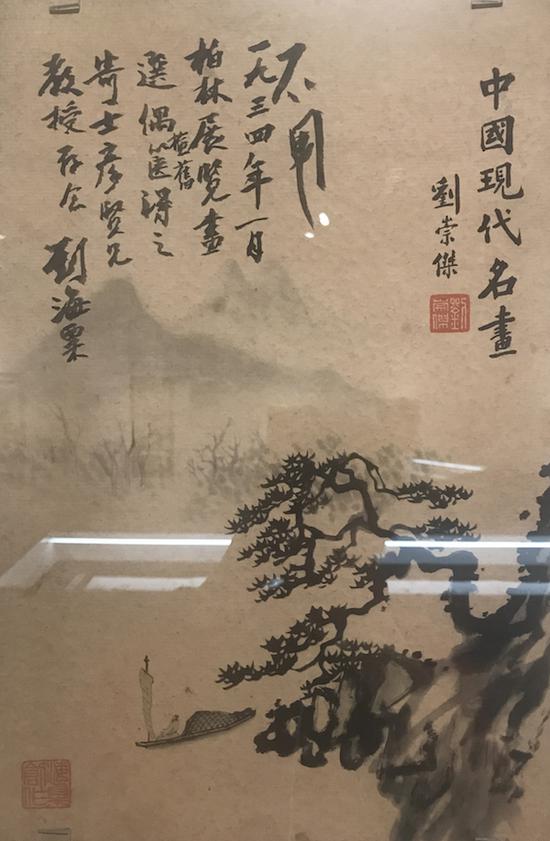 中國現代名畫
劉崇傑
劉崇傑
一九三四年一月
柏林展覽畫
選偶檢舊篋得之
士彥賢兄
教授存念 劉海粟